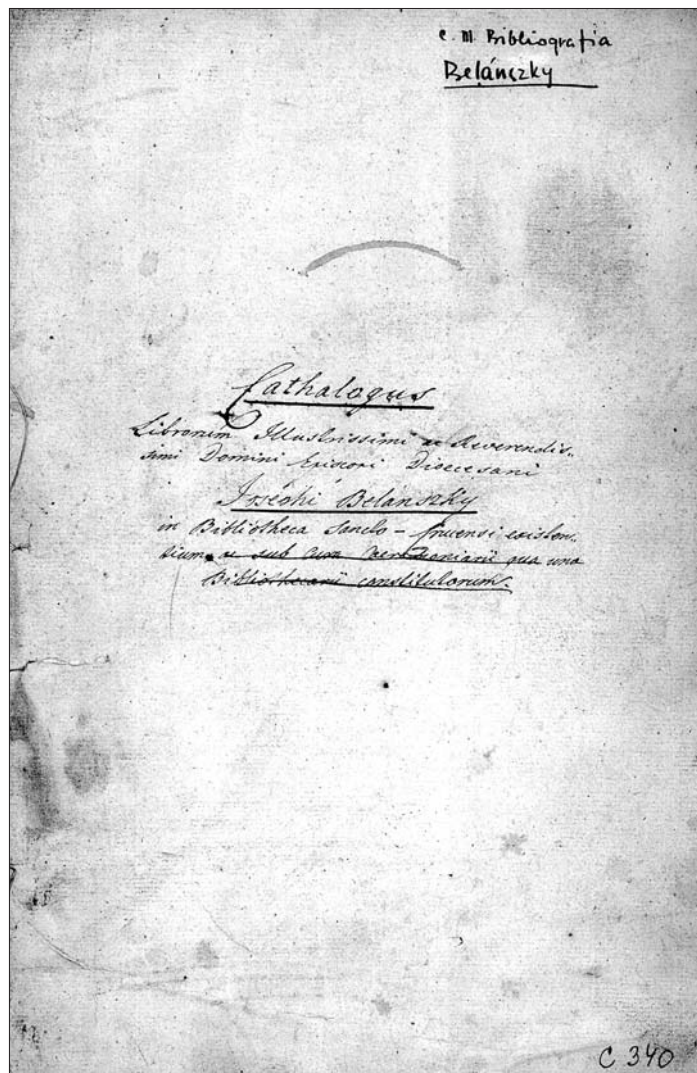 c. III. Bibliografia
Belánszky
Cathalogus
Librorum Illustrissimi ac Reverendis-
simi Domini Episcopi Dioecesani
Josephi Belánszky
in Bibliotheca Sancto-Crucensi existen-
tium, ac sub cura qua una
Bibliothecarii constitutorum.
C 340